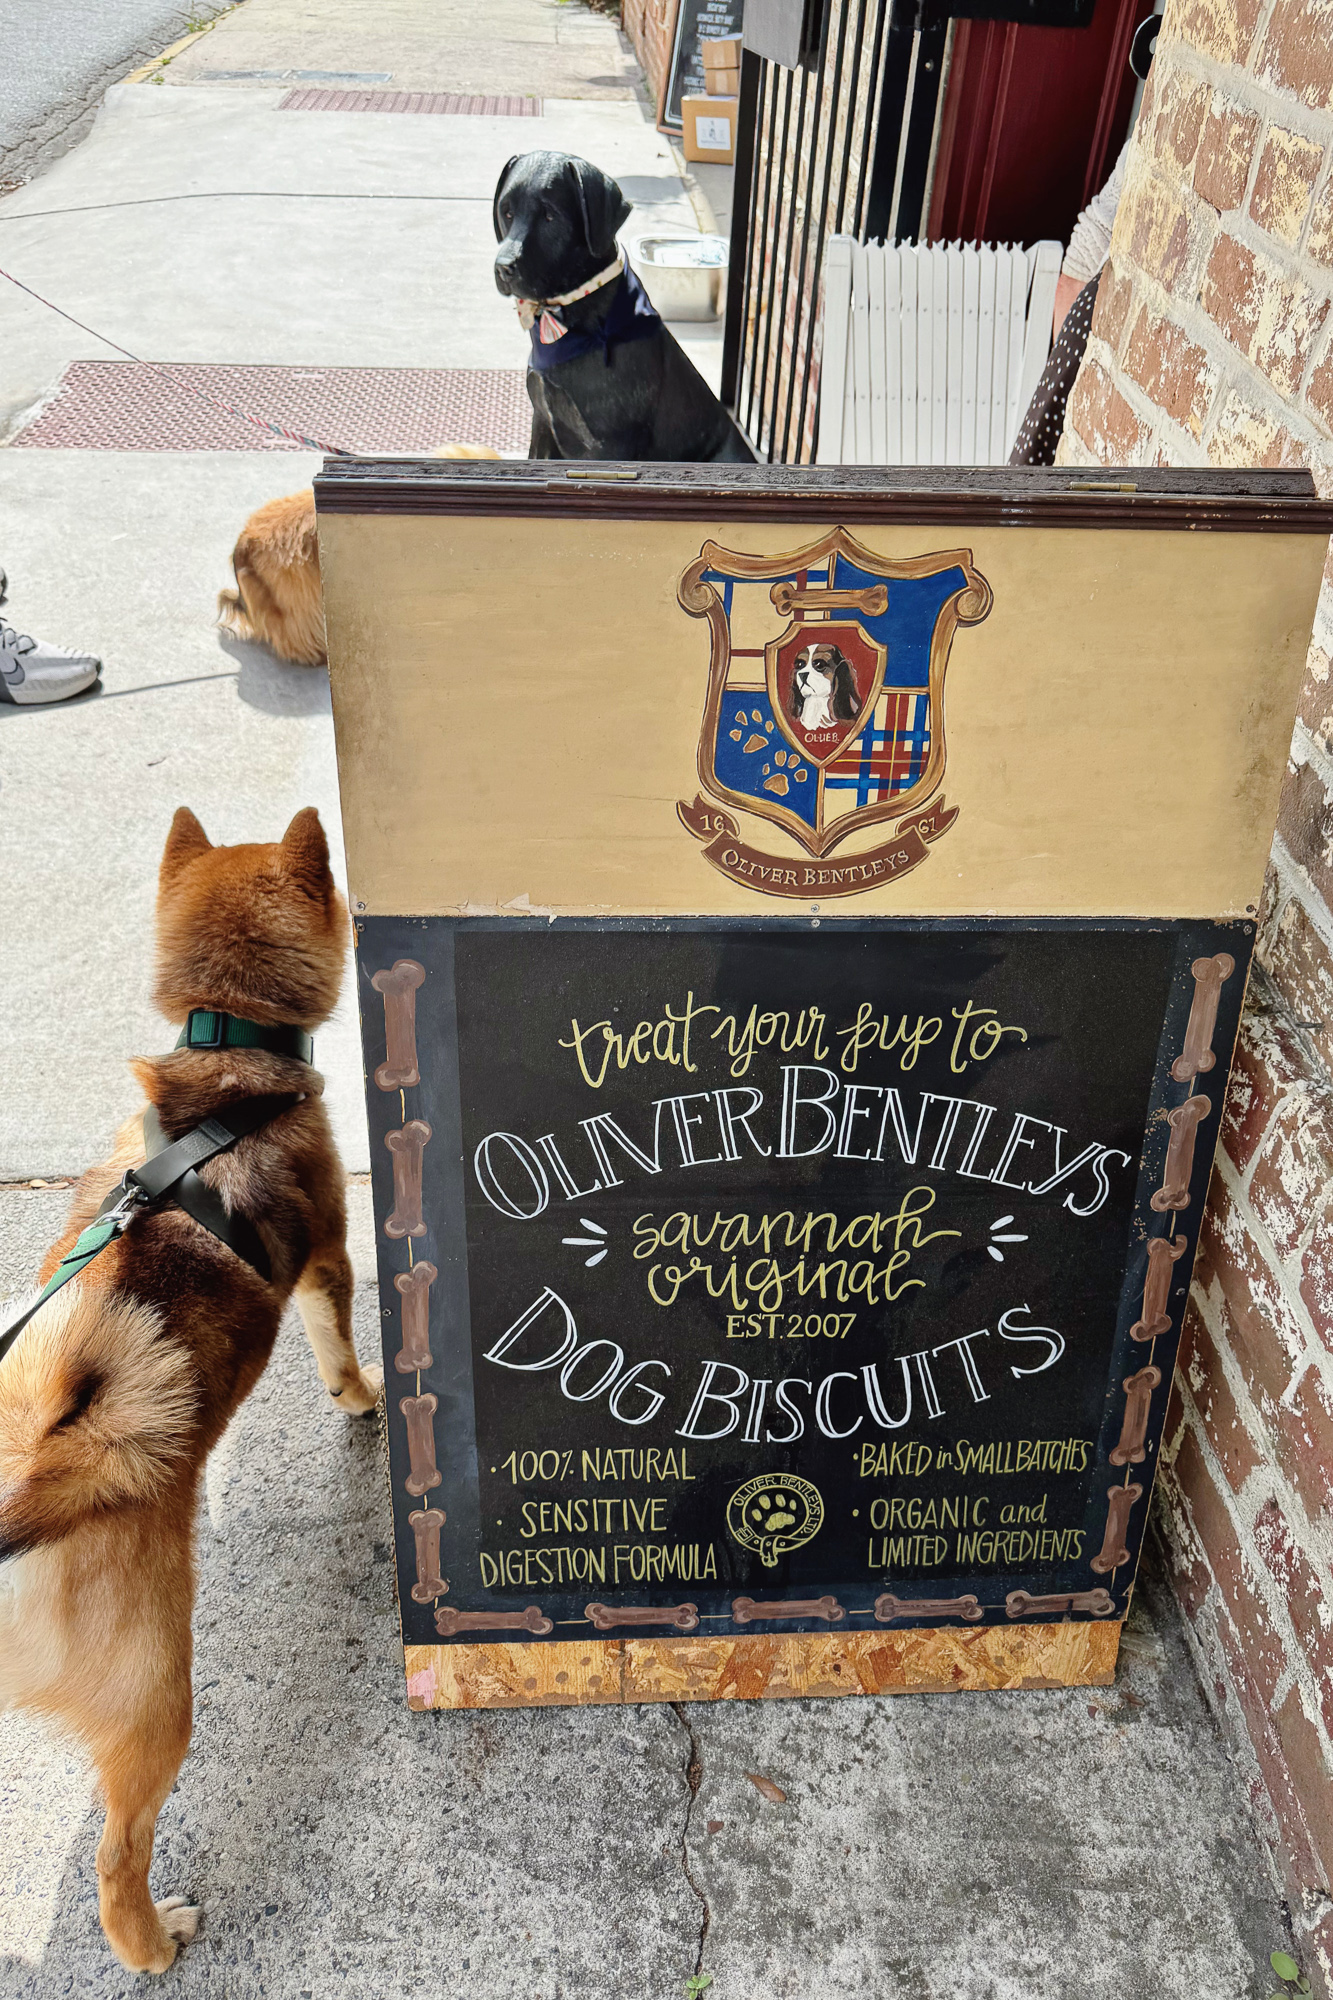 OLIVER
16 67
OLIVER BENTLEYS
treat your pup to
OLIVER BENTLEYS
savannah
original
EST. 2007
DOG BISCUITS
• 100% NATURAL
• SENSITIVE
DIGESTION FORMULA
OLIVER BENTLEYS LTD
• BAKED in SMALL BATCHES
• ORGANIC and
LIMITED INGREDIENTS